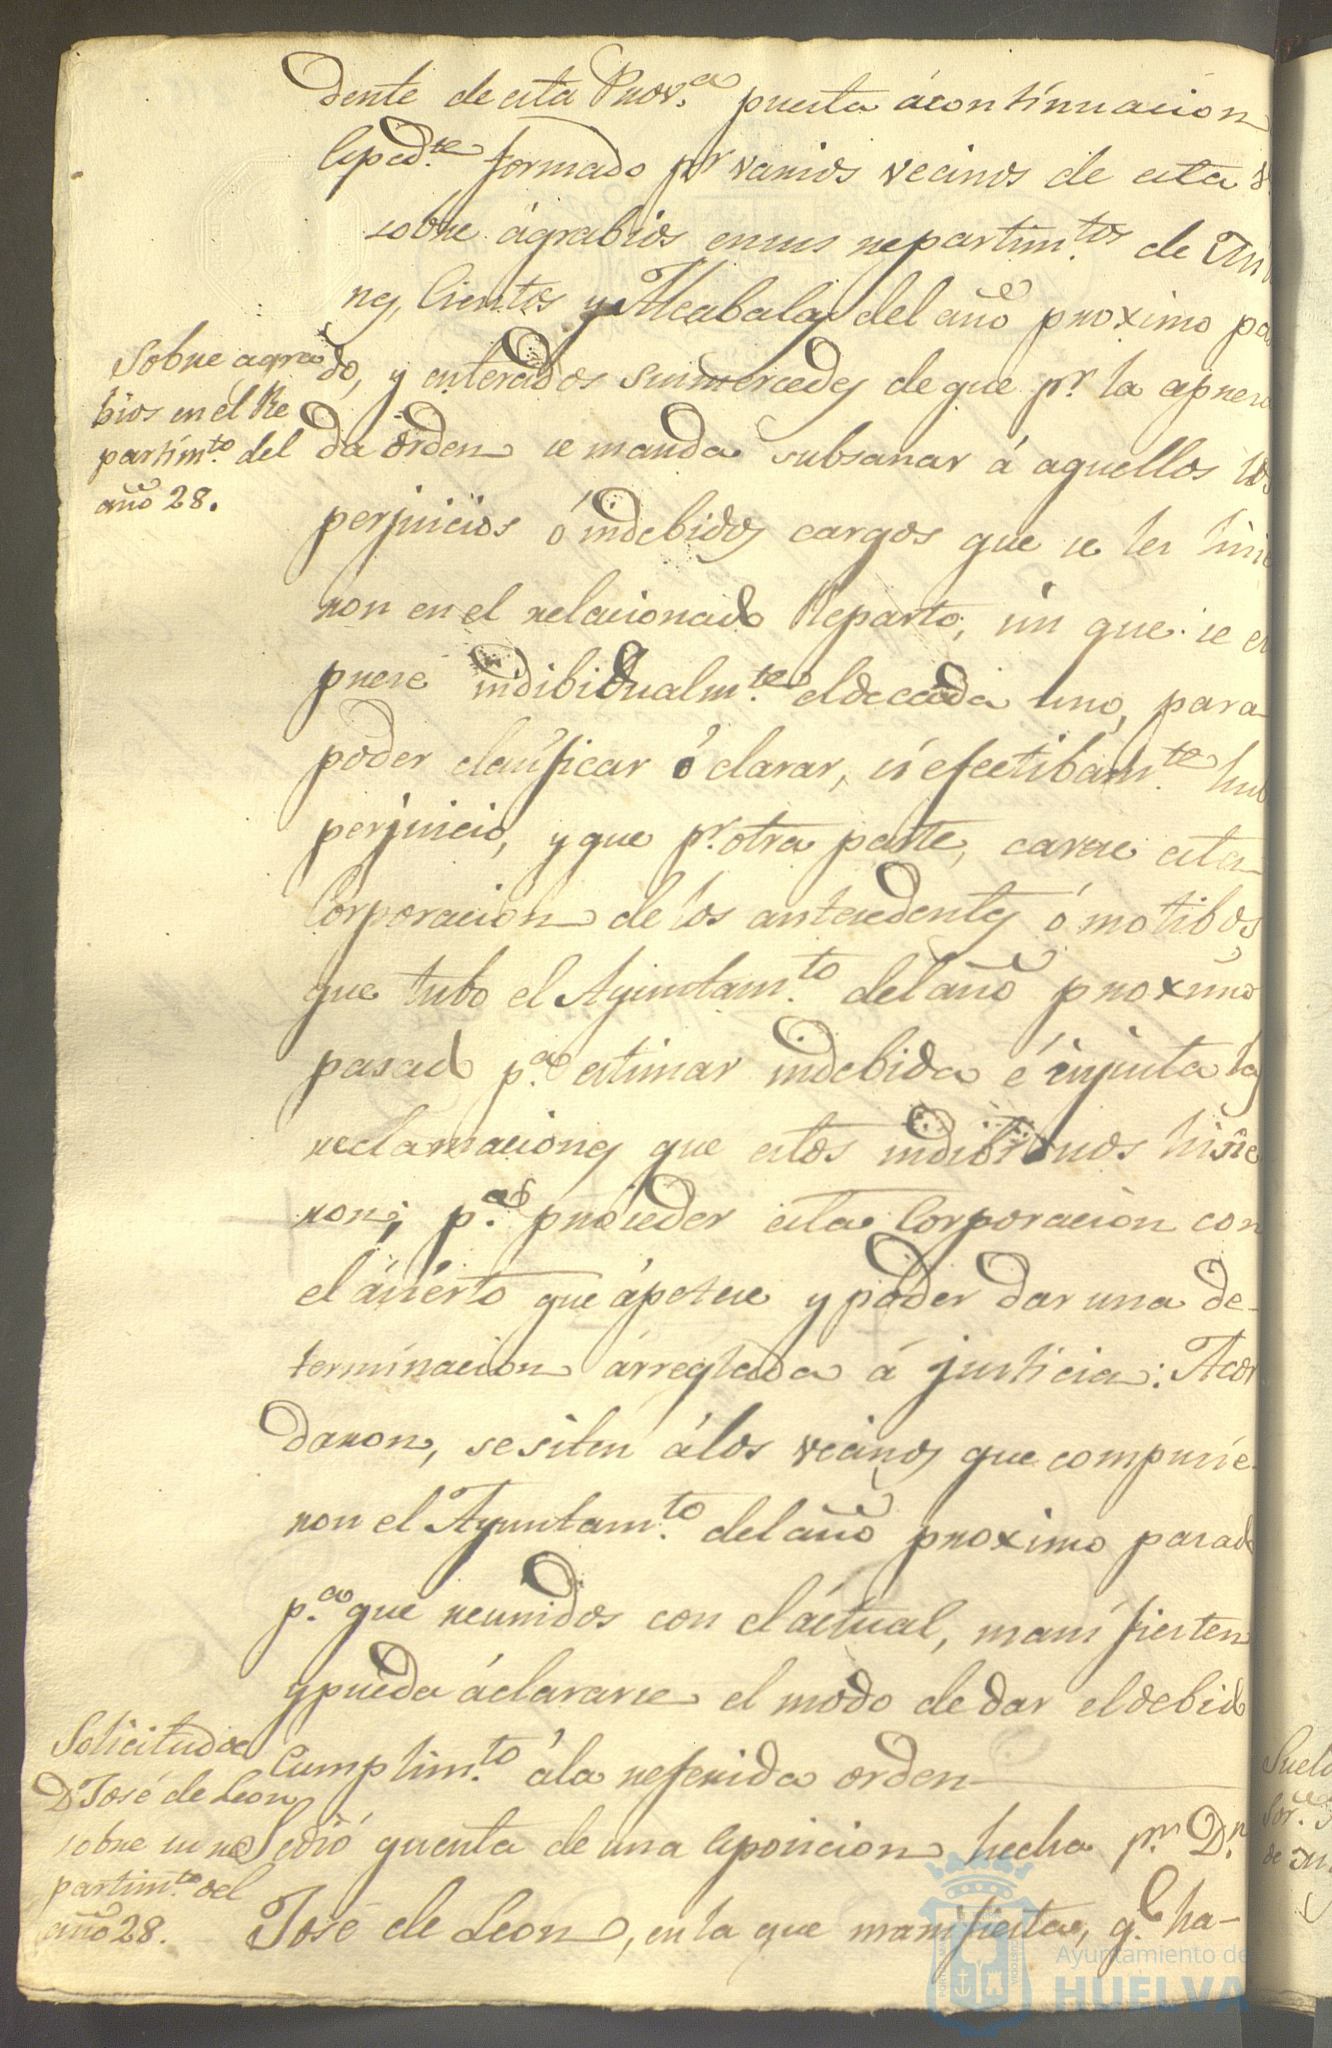 dente de esta Prov.ª puesta á continuacion
Esped.te formado p.r varios vecinos de esta V.
sobre ágrabios en sus repartim.tos de
nes, Cientos y Alcabalas del año proximo pa
Sobre agra
bios en el Re
partim.to del
año 28.
do, y enterados sus mercedes de que p.r la espresa
da órden se manda subsanar á aquellos los
perjuicios ó indebidos cargos que se les hicie
ron en el relacionado Reparto, sin que se es
prese indibidualm.te el de cada uno, para
poder clasificar ó clarar, si efectibam.te hubo
perjuicio, y que p.r otra parte, carece esta
Corporacion de los antecedentes ó motibos
que tubo el Ayuntam.to del año proximo
pasado p.ª estimar indebida é injusta las
reclamaciones que estos indibiduos hicie
ron; p.ª proceder esta Corporacion con
el ácierto que ápetece y poder dar una de-
terminacion árreglada á justicia: Acor
daron, se siten á los vecinos que compusie-
ron el Ayuntam.to del año proximo pasado
p.ª que reunidos con el áctual, manifiesten
y pueda áclararse el modo de dar el debido
Cumplim.to á la referida orden
Solicitud de
D. José de Leon
sobre su re
partim.to del
año 28.
Se dió quenta de una esposicion hecha p.r D.n
José de Leon, en la que manifiesta, q.e ha-
Sueld
Sor.
de
Ayuntamiento de
HUELVA